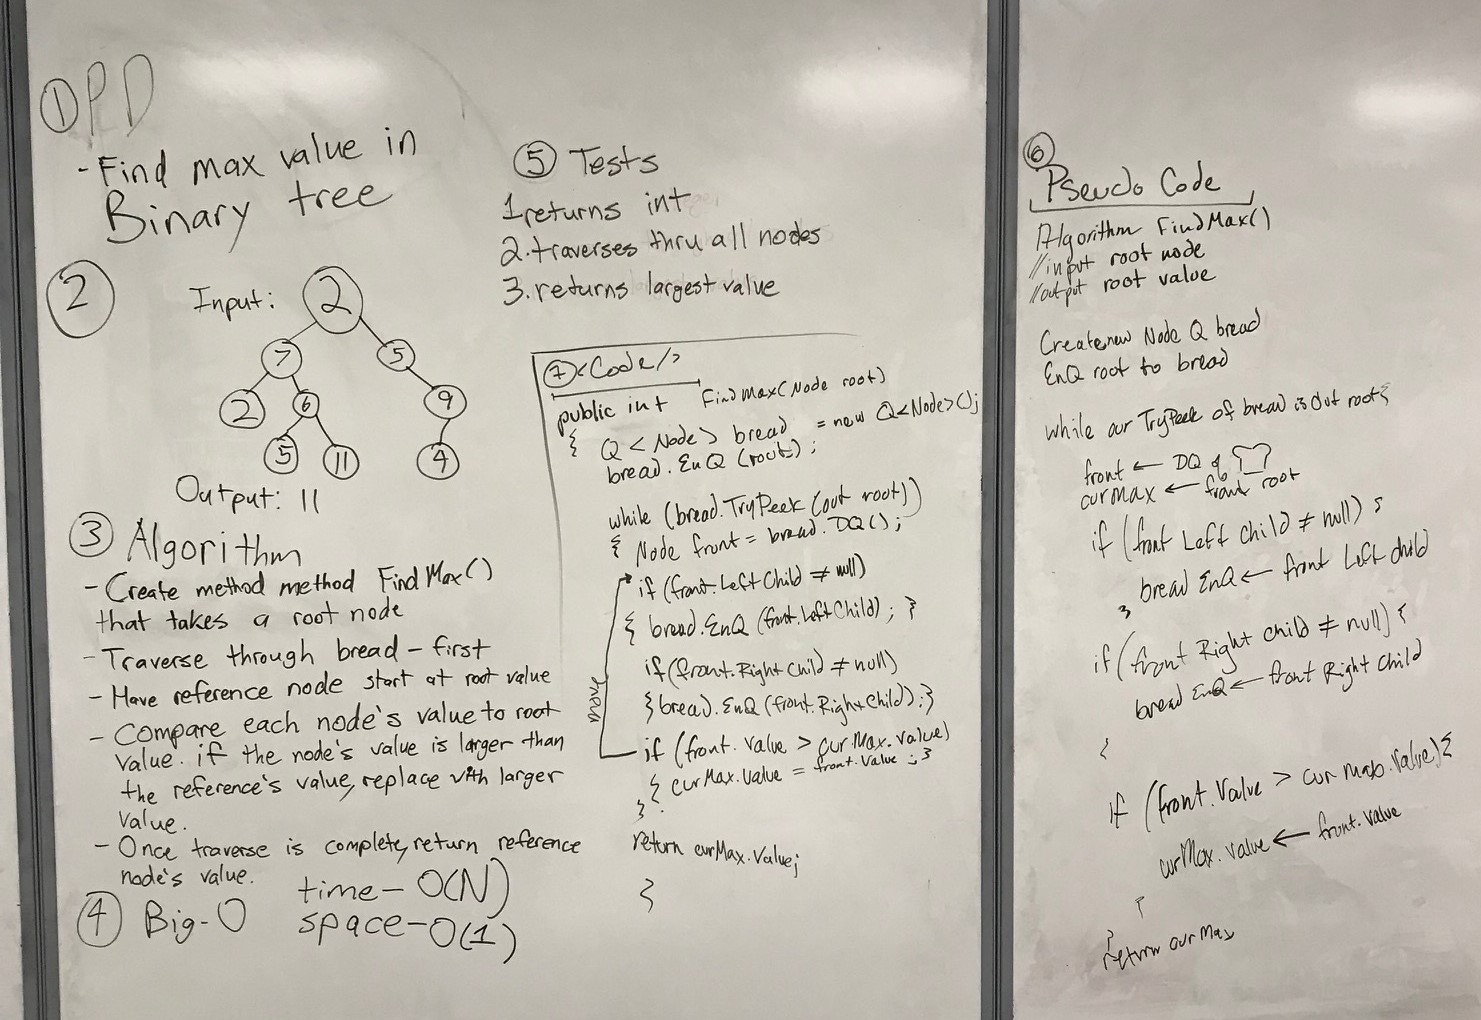 ① PD
- Find max value in
Binary tree
②
Input:
2
7 5
2 6 9
5 11 4
Output: 11
③ Algorithm
- Create method method FindMax()
that takes a root node
- Traverse through bread-first
- Have reference node start at root value
- Compare each node's value to root
value. if the node's value is larger than
the reference's value, replace with larger
value.
- Once traverse is complete, return reference
node's value.
④ Big-O
time- O(N)
space- O(1)
⑤ Tests
1. returns int
2. traverses thru all nodes
3. returns largest value
⑦ <Code/>
public int FindMax(Node root)
{ Q<Node> bread = new Q<Node>();
bread.EnQ(root);
while (bread.TryPeek(out root))
{ Node front = bread.DQ();
if (front.LeftChild ≠ null)
{ bread.EnQ(front.LeftChild); }
if(front.RightChild ≠ null)
{bread.EnQ(front.RightChild);}
move
if (front.value > curMax.value)
{ curMax.value = front.value; }
}
return curMax.value;
}
⑥
Pseudo Code
Algorithm FindMax()
//input root node
//output root value
Create new Node Q bread
EnQ root to bread
while our TryPeek of bread is out root{
front ← DQ of
curMax ← front root
if (front Left Child ≠ null) {
bread EnQ ← front Left child
}
if (front Right child ≠ null) {
bread EnQ ← front Right Child
}
if (front.Value > cur Max.Value){
curMax.value ← front.value
}
}
return curMax